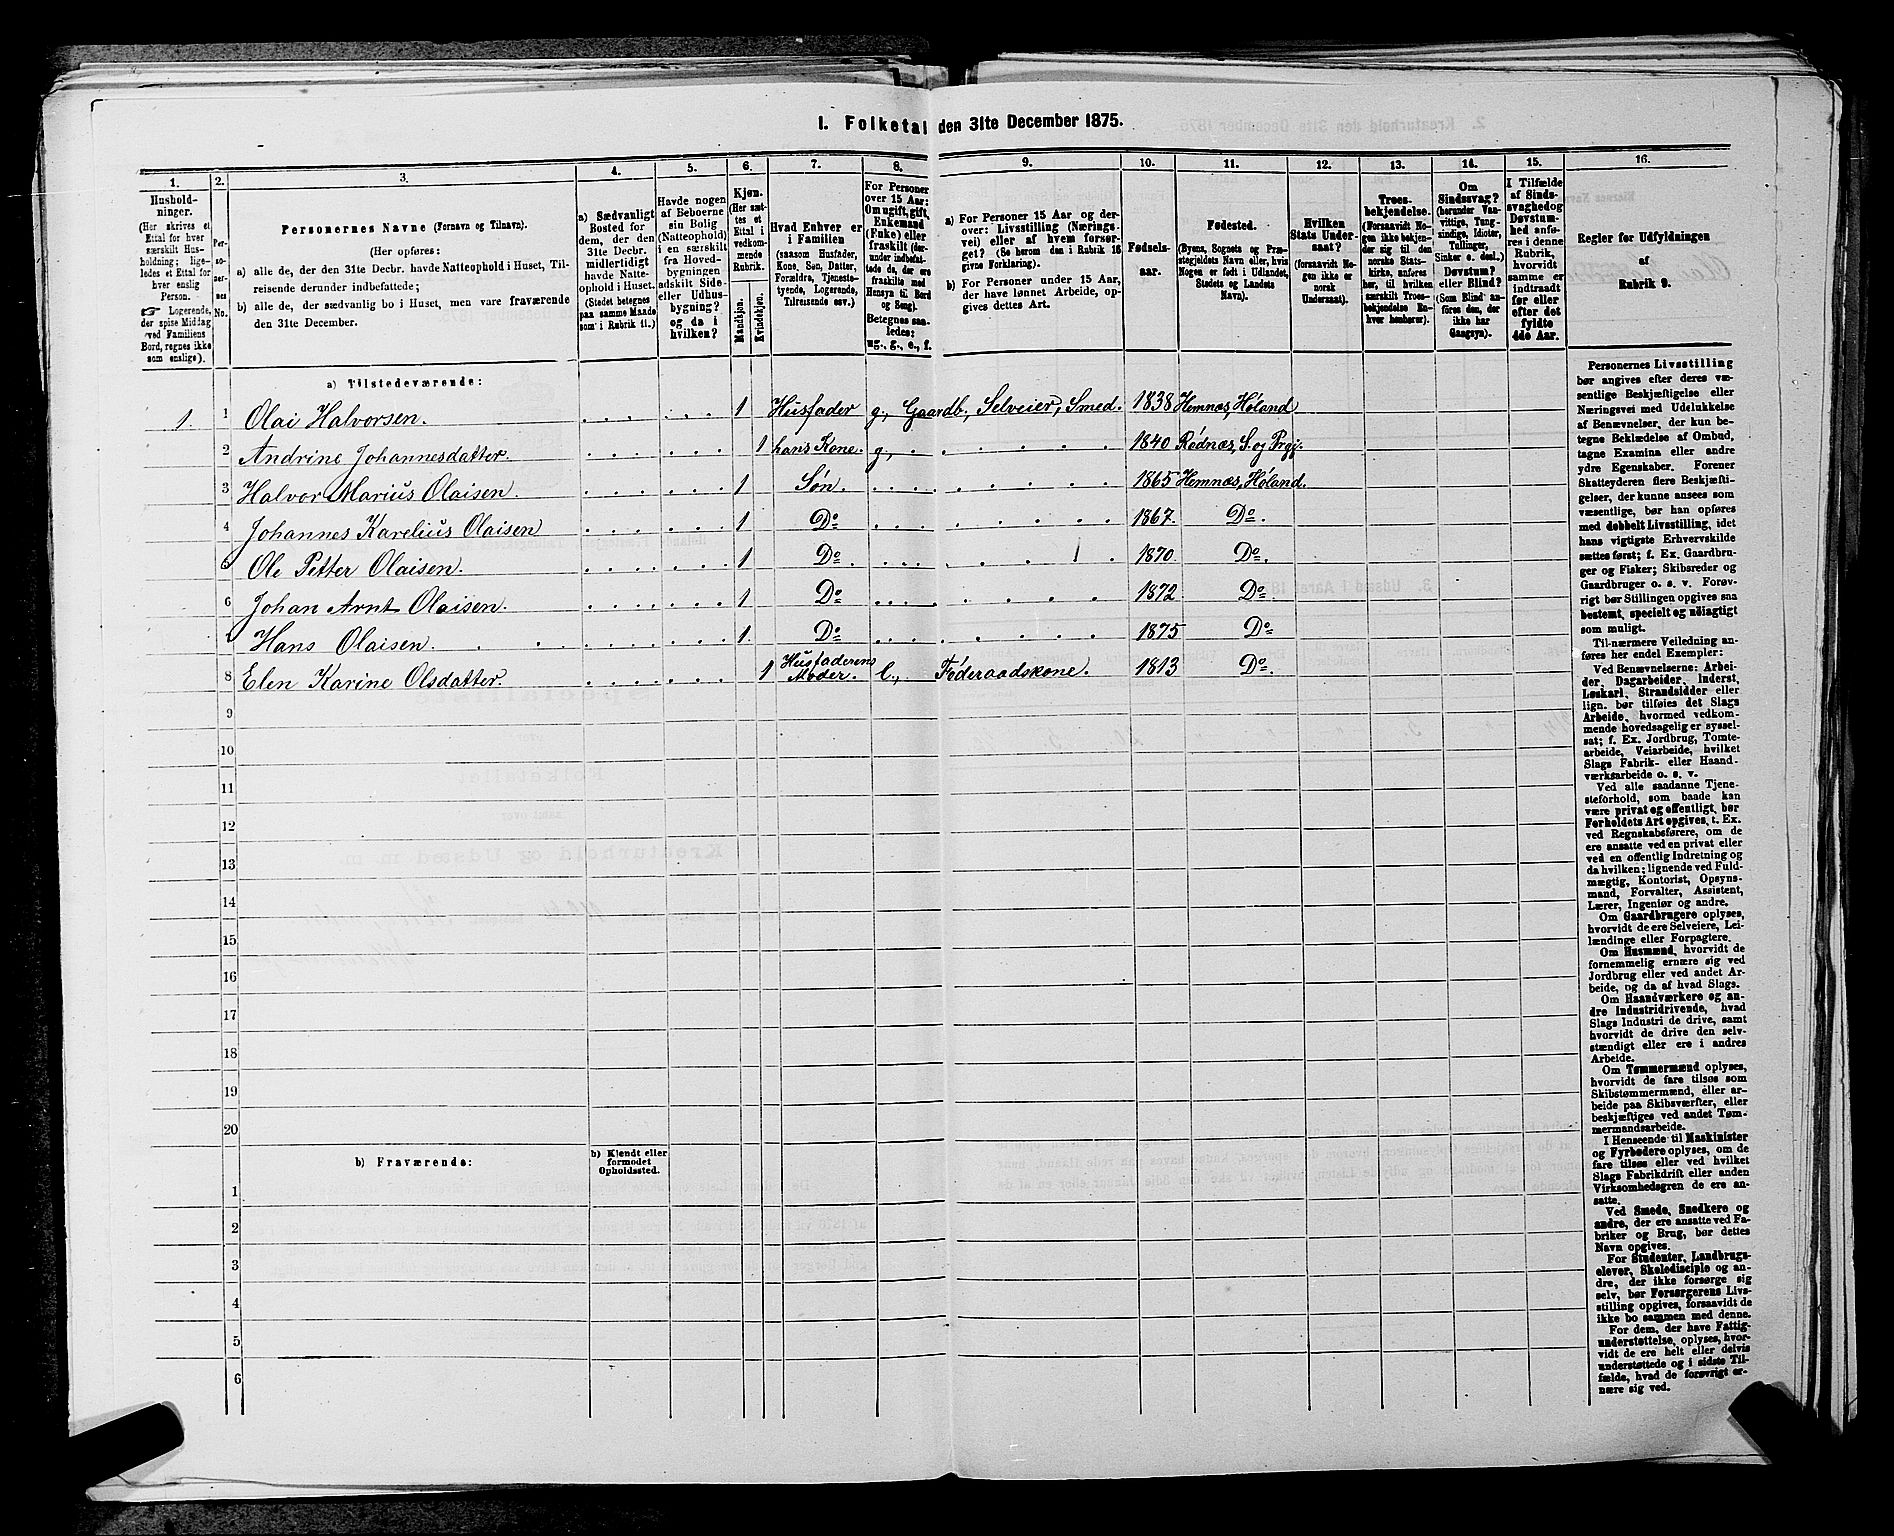 1. Folketal den 31te December 1875.
1. 2. 3. 4. 5. 6. 7. 8. 9. 10. 11. 12. 13. 14. 15. 16.
Hushold-
ninger.
(Her skrives et
Ettal for hver
særskilt Hus-
holdning; lige-
ledes et Ettal for
hver enslig
Person.
☞ Logerende,
der spise Middag
ved Familiens
Bord, regnes ikke
som enslige).
Per-
so-
ner-
nes
No.
Personernes Navne (Fornavn og Tilnavn).
(Her opføres:
a) alle de, der den 31te Decbr. havde Natteophold i Huset, Til-
reisende derunder indbefattede;
b) alle de, der sædvanlig bo i Huset, men vare fraværende
den 31te December.
a) Sædvanligt
Bosted for
dem, der den
31te Decbr.
midlertidigt
havde Natte-
ophold i Huset.
(Stedet betegnes
paa samme Maade
som i Rubrik 11.)
Havde nogen
af Beboerne
sin Bolig
(Natteophold)
i en særskilt
fra Hoved-
bygningen
adskilt Side-
eller Udhus-
bygning?
og da i
hvilken?
Kjøn.
(Her sæt-
tes et
Ettal i
vedkom-
mende
Rubrik.
Mandkjøn.
Kvindekjøn.
Hvad Enhver er
i Familien
(saasom Husfader,
Kone, Søn, Datter,
Forældre, Tjeneste-
tyende, Logerende,
Tilreisende osv.)
For Personer
over 15 Aar:
Om ugift, gift,
Enkemand
(Enke) eller
fraskilt (der-
under indbefat-
tede de, der ere
fraskilte med
Hensyn til Bord
og Seng).
Betegnes saa-
ledes:
ug., g., e., f.
a) For Personer 15 Aar og der-
over: Livsstilling (Nærings-
vei) eller af hvem forsør-
get? (Se herom den i Rubrik 16
givne Forklaring).
b) For Personer under 15 Aar,
der have lønnet Arbeide, op-
gives dettes Art.
Fødsels-
aar.
Fødested.
(Byens, Sognets og Præ-
stegjeldets Navn eller, hvis
Nogen er født i Udlandet,
Stedets og Landets
Navn).
Hvilken
Stats Under-
saat?
(forsaavidt No-
gen ikke er
norsk
Undersaat).
Troes-
bekjendelse.
(Forsaavidt No-
gen ikke bekjen-
der sig til den
norske Stats-
kirke, anføres
her, til hvilken
særskilt Troes-
bekjendelse En-
hver henhører).
Om
Sindssvag?
(herunder Van-
vittige, Tung-
sindige, Idioter,
Tullinger,
Sinker o. desl.)
Døvstum?
eller Blind?
(Som Blind an-
føres den, der
ikke har
Gangsyn).
I Tilfælde
af Sinds-
svaghed og
Døvstum-
hed anfø-
res i denne
Rubrik,
hvorvidt
samme er
indtraadt
før eller
efter det
fyldte
4de Aar.
Regler for Udfyldningen
af
Rubrik 9.
a) Tilstedeværende:
1. 1 Olai Halvorsen. 1 Husfader g., Gaardb., Selveier, Smed. 1838 Hemnæs, Høland
2 Andrine Johannesdatter. 1 hans Kone. g., 1840 Rødnæs, S. og Prgj.
3 Halvor Marius Olaisen. 1 Søn. 1865 Hemnæs, Høland.
4 Johannes Karelius Olaisen 1 Do 1867. Do.
5 Ole Petter Olaisen. 1 Do. 1870. Do.
6 Johan Arnt Olaisen. 1 Do 1872 Do.
7 Hans Olaisen. 1. Do 1875 Do
8 Elen Karine Olsdatter. 1 Husfaderens Moder. e., Føderaadskone. 1813 Do.
9
10
11
12
13
14
15
16
17
18
19
20
b) Fraværende:
b) Kjendt eller
formodet
Opholdssted.
1
2
3
4
5
6
Personernes Livsstilling
bør angives efter deres væ-
sentlige Beskjæftigelse eller
Næringsvei med Udelukkelse
af Benævnelser, der kun be-
tegne Beklædelse af Ombud,
tagne Examina eller andre
ydre Egenskaber. Forener
Skatteyderen flere Beskjæfti-
gelser, der kunne ansees som
væsentlige, bør han opføres
med dobbelt Livsstilling, idet
hans vigtigste Erhvervskilde
sættes først; f. Ex. Gaardbru-
ger og Fisker; Skibsreder og
Gaardbruger o. s. v. Forøv-
rigt bør Stillingen opgives saa
bestemt, specielt og nøiagtigt
som muligt.
Til nærmere Veiledning an-
føres her endel Exempler:
Ved Benævnelserne: Arbei-
der, Dagarbeider, Inderst,
Løskarl, Strandsidder eller
lign. bør tilføies det Slags
Arbeide, hvormed vedkom-
mende hovedsagelig er syssel-
sat; f. Ex. Jordbrug, Tomte-
arbeide, Veiarbeide, hvilket
Slags Fabrik- eller Haand-
værksarbeide o. s. v.
Ved alle saadanne Tjene-
steforhold, som baade kan
være privat og offentligt, bør
Forholdets Art opgives, t. Ex.
ved Regnskabsførere, om de
ere ansatte ved en privat eller
ved en offentlig Indretning og
da hvilken; lignende ved Fuld-
mægtig, Kontorist, Opsyns-
mand, Forvalter, Assistent,
Lærer, Ingeniør og andre.
Om Gaardbrugere oplyses,
hvorvidt de ere Selveiere, Lei-
lændinge eller Forpagtere.
Om Husmænd, hvorvidt de
fornemmelig ernære sig ved
Jordbrug eller ved andet Ar-
beide, og da af hvad Slags.
Om Haandværkere og an-
dre Industridrivende, hvad
Slags Industri de drive, samt
hvorvidt de drive den selv-
stændigt eller ere i andres
Arbeide.
Om Tømmermænd oplyses,
hvorvidt de fare tilsøs som
Skibstømmermænd, eller ar-
beide paa Skibsværfter, eller
beskjæftiges ved andet Tøm-
mermandsarbeide.
I Henseende til Maskinister
og Fyrbødere oplyses, om de
fare tilsøs eller ved hvilket
Slags Fabrikdrift eller anden
Virksomhedsgren de ere an-
satte.
Ved Smede, Snedkere og
andre, der ere ansatte ved Fa-
briker og Brug, bør dettes
Navn opgives.
For Studenter, Landbrugs-
elever, Skoledisciple og an-
dre, der ikke forsørge sig
selv, bør Forsørgerens Livs-
stilling opgives, forsaavidt de
ikke bo sammen med denne.
For dem, der have Fattig-
understøttelse, oplyses, hvor-
vidt de ere helt eller delvis
understøttede og i sidste Til-
fælde, hvad de forøvrigt er-
nære sig ved.